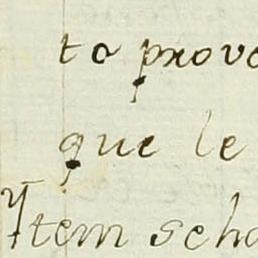 to provo
que le
Ytem scho